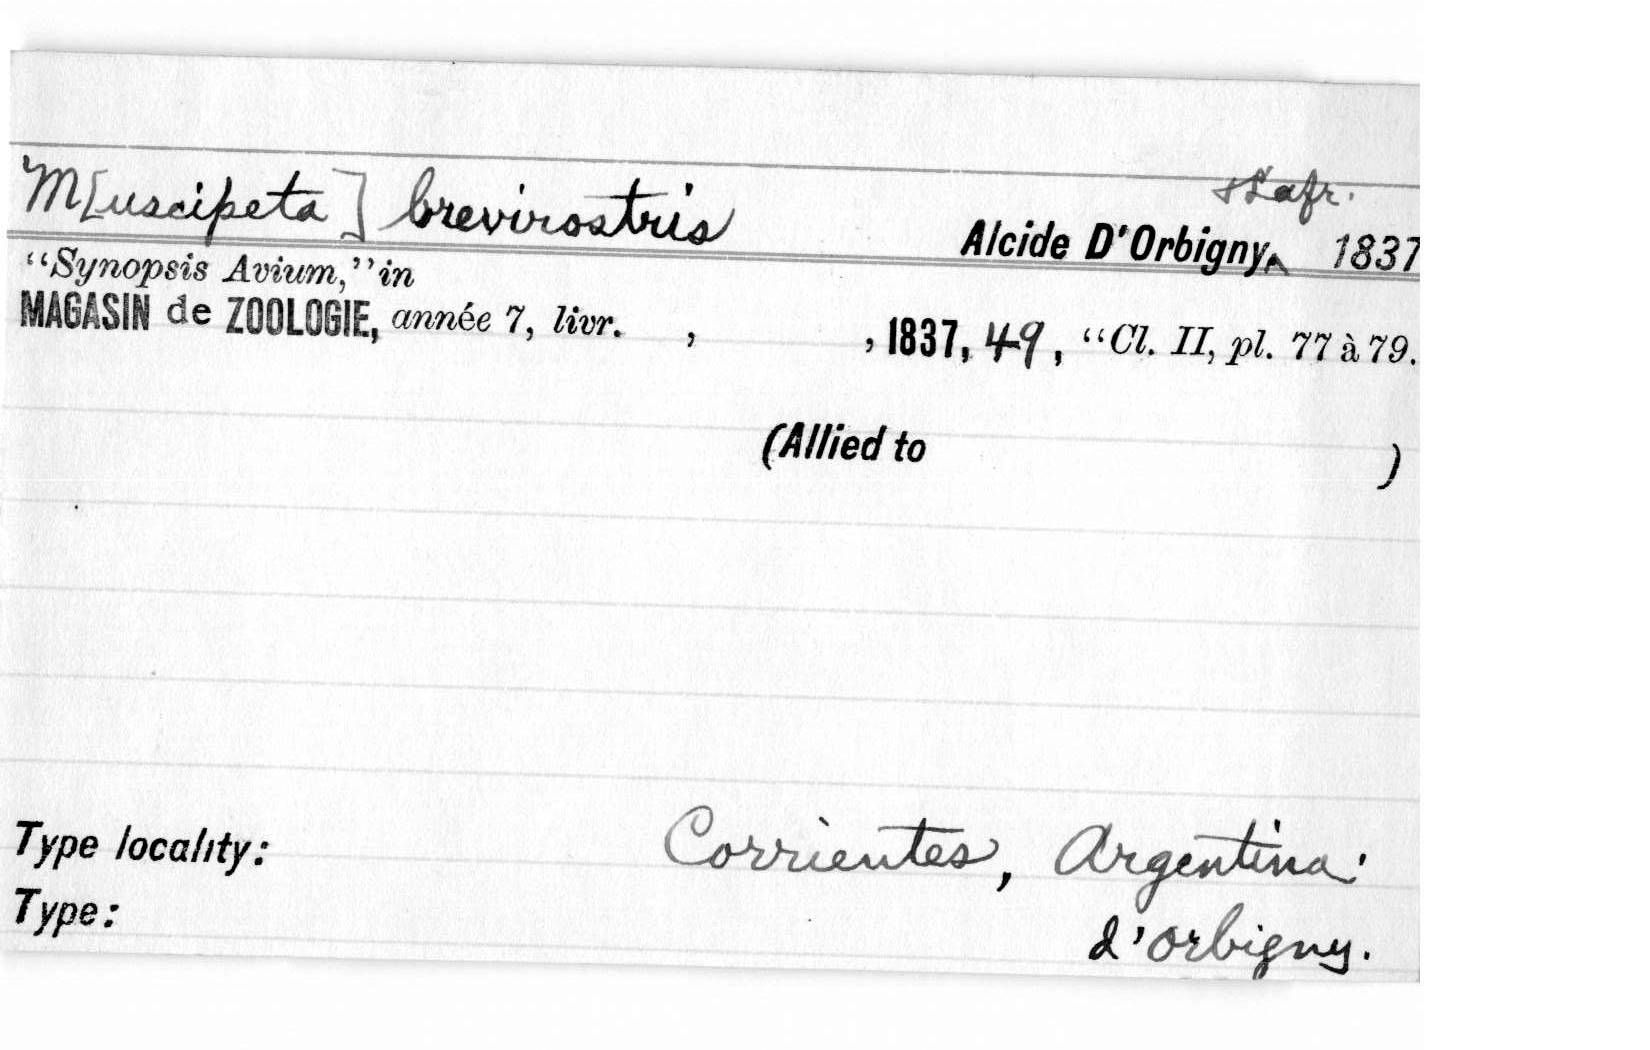 M[uscipeta] brevirostris
& Lafr.
Alcide D'Orbigny^ 1837
“Synopsis Avium,” in
MAGASIN de ZOOLOGIE, année 7, livr. , , 1837, 49, “Cl. II, pl. 77 à 79.
(Allied to )
Type locality: Corrientes, Argentina:
Type: d'Orbigny.